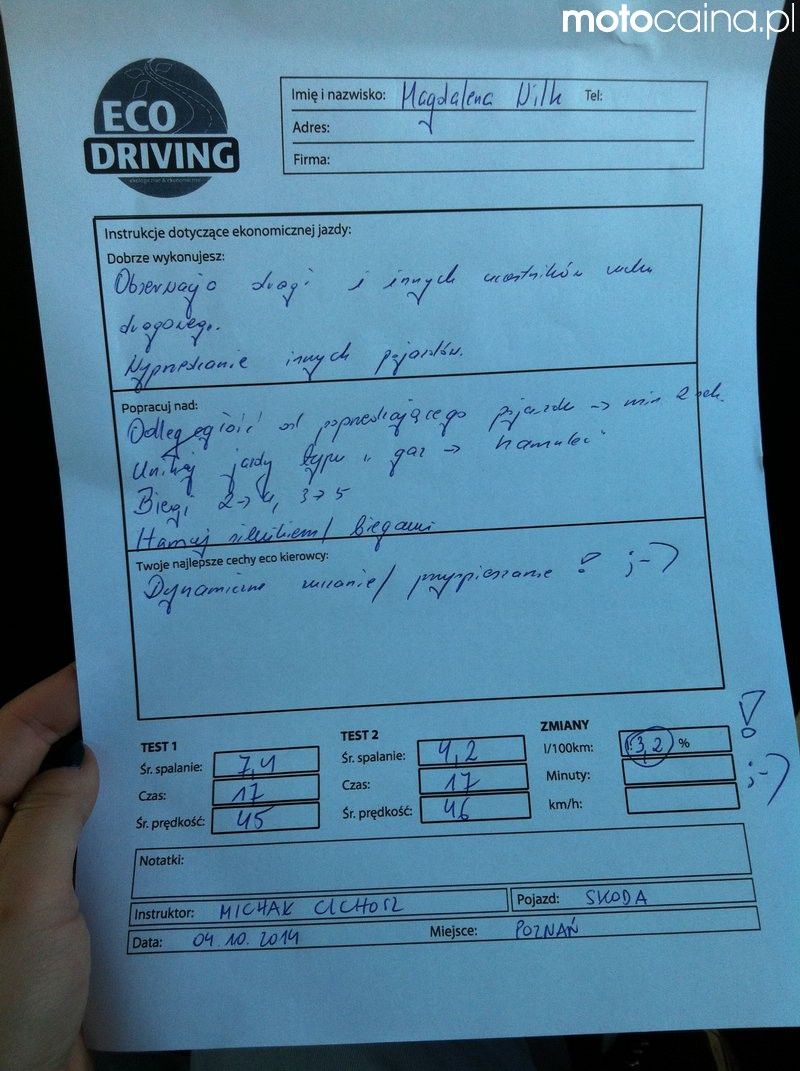 motocaina.pl
ECO
DRIVING
ekologicznie & ekonomicznie
Imię i nazwisko: Magdalena Wilk Tel:
Adres:
Firma:
Instrukcje dotyczące ekonomicznej jazdy:
Dobrze wykonujesz:
Obserwacja drogi i innych uczestników ruchu
drogowego.
Wyprzedzanie innych pojazdów.
Popracuj nad:
Odległość od poprzedzającego pojazdu → min 2 sek.
Unikaj jazdy typu „gaz → hamulec"
Biegi 2→4, 3→5
Hamuj silnikiem/ biegami
Twoje najlepsze cechy eco kierowcy:
Dynamiczne ruszanie/ przyspieszanie ! ;-)
TEST 1
Śr. spalanie: 7,4
Czas: 17
Śr. prędkość: 45
TEST 2
Śr. spalanie: 4,2
Czas: 17
Śr. prędkość: 46
ZMIANY
l/100km: 3,2 % !
Minuty: ;-)
km/h:
Notatki:
Instruktor: MICHAŁ CICHOSZ Pojazd: SKODA
Data: 04.10.2014 Miejsce: POZNAŃ